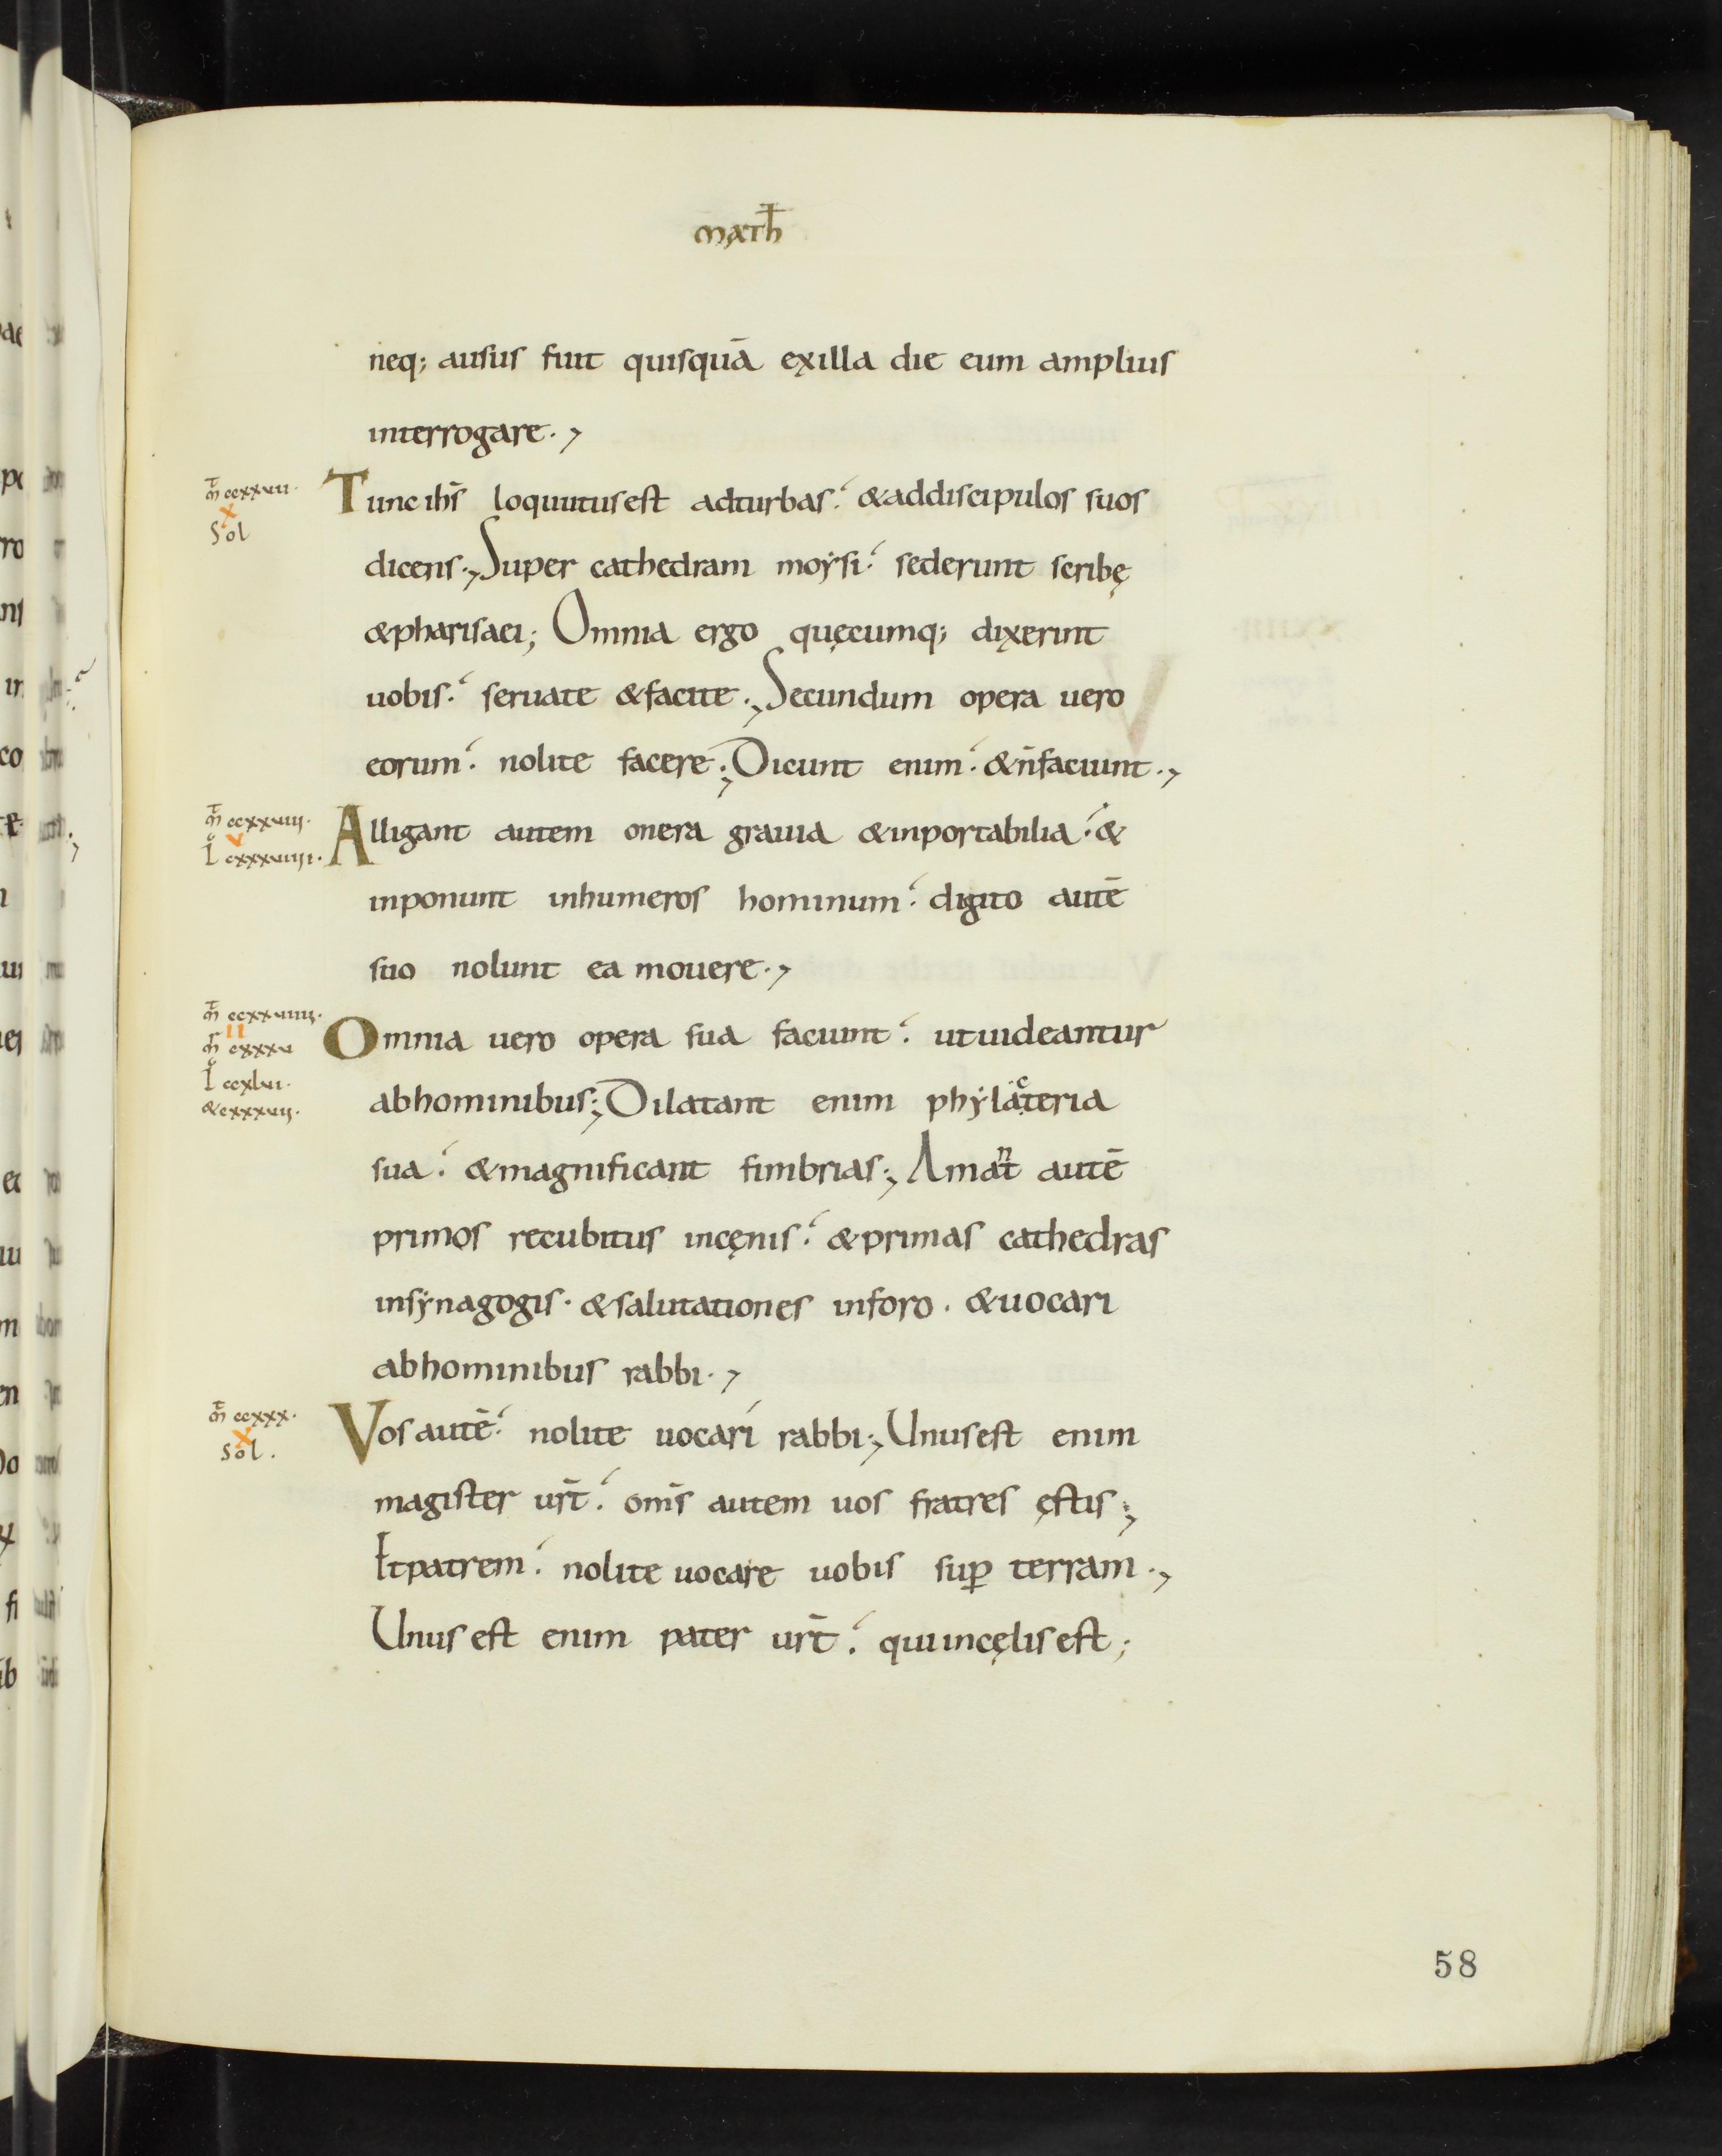 math̄
neq; ausus fuit quisquā exilla die eum amplius
interrogare.,
m̄ ccxxvii.
X
Sol
Tunc ih̄s loquutusest adturbas.́ &addiscipulos suos
dicens.,Super cathedram moẏsi.́ sederunt scribę
&pharisaei; Omnia ergo quęcumq; dixerint
uobis.́ seruate &facite.,Secundum opera uero
eorum.́ nolite facere.,Dicunt enim.́ &n̄faciunt.,
m̄ ccxxviii.
V
L̊ cxxxviiii.
Alligant autem onera grauia &inportabilia.́ &
inponunt inhumeros hominum.́ digito autē
suo nolunt ea mouere.,
m̄ ccxxviiii.
II
m̄ cxxxv
L̊ ccxlvi.
&cxxxvii.
Omnia uero opera sua faciunt.́ utuideantur
abhominibus.,Dilatant enim phẏlacteria
sua.́ &magnificant fimbrias., Amant autē
primos recubitus incęnis.́ &primas cathedras
insẏnagogis. &salutationes inforo. &uocari
abhominibus rabbi.,
m̄ ccxxx.
X
Sol.
Vos autē.́ nolite uocari rabbi., Unusest enim
magister ur̄t.́ om̄s autem uos fratres ęstis.,
Etpatrem.́ nolite uocare uobis suꝑ terram.,
Unus est enim pater ur̄t.́ quiincęlisest;
58